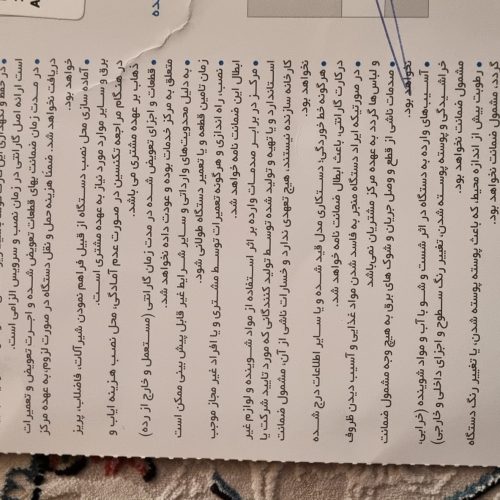 در حفظ و نگهداری این کارت کوشا باشید
است ارائه اصل گارانتی در زمان نصب و سرویس الزامی است.
• در مـدت زمان ضمانت بهای قطعات تعویض شـده و اجـرت تعویض و تعمیرات
دریافت نخواهد شد. ضمناً هزینه حمل و نقل دستگاه در صورت لزوم، به عهده مرکز
خواهد بود.
• آماده سازی محل نصب دسـتگاه از قبیل فراهم نمودن شیرآلات، فاضلاب، پریز
برق و سـایر موارد مورد نیاز به عهده مشتری است.
در هنگام مراجعه تکنسین در صورت عدم آمادگی محل نصب هـزینه ایاب و
ذهاب بر عهده مشتری می باشد.
• قطعات و اجزای تعویض شـده در مدت زمان گارانتی (مستعمل و خارج از رده)
متعلق به مرکز خدمات بوده و عودت داده نخواهد شد.
• به دلیل محدودیت‌های وارداتی و سـایر شـرایط غیر قابل پیش بینی ممکن است
زمان تامین قطعه و یا تعمیر دستگاه طولانی شود.
• نصب، راه اندازی و هرگونه تعمیرات توسط مشـتری و یا افراد غیر مجاز موجب
ابطال این ضمانت نامه خواهد شد.
• مرکـز در برابـر صدمـات وارده بر اثر استفاده از مواد شـوینده و لوازم غیر
اسـتاندارد و یا تهیه و تولید شده توسط تولید کنندگانی که مورد تایید شرکت یا
کارخانه سازنده نیستند، هیچ تعهدی ندارد و خسارات ناشی از آن، مشمول ضمانت
نخواهد بود.
• هرگونه خط خوردگی، دستکاری مدل قید شـده و یا سـایر اطلاعات درج شـده
درکارت گارانتی، باعث ابطال ضمانت نامه خواهد شد.
• در صورتیکه ایراد دستگاه منجر به فاسد شدن مواد غذایی و آسیب دیدن ظروف
و لباس‌ها گردد به عهده مرکز مشتریان نمی‌باشد
• صدمات ناشی از قطع و وصل جریان و شوک های برق به هیچ وجه مشمول ضمانت
نخواهد بود.
• آسـیب‌های وارده به دستگاه در اثر شست و شـو با آب و مواد شوینده (خرابی،
خراشـیدگی و پوسته پوسته شدن، تغییر رنگ سـطوح و اجزای داخلی و خارجی)
مشمول ضمانت نخواهد بود.
• رطوبت بیش از اندازه محیط، که باعث پوسته پوسته شدن، یا تغییر رنگ دستگاه
گردد، مشمول ضمانت نخواهد بود.